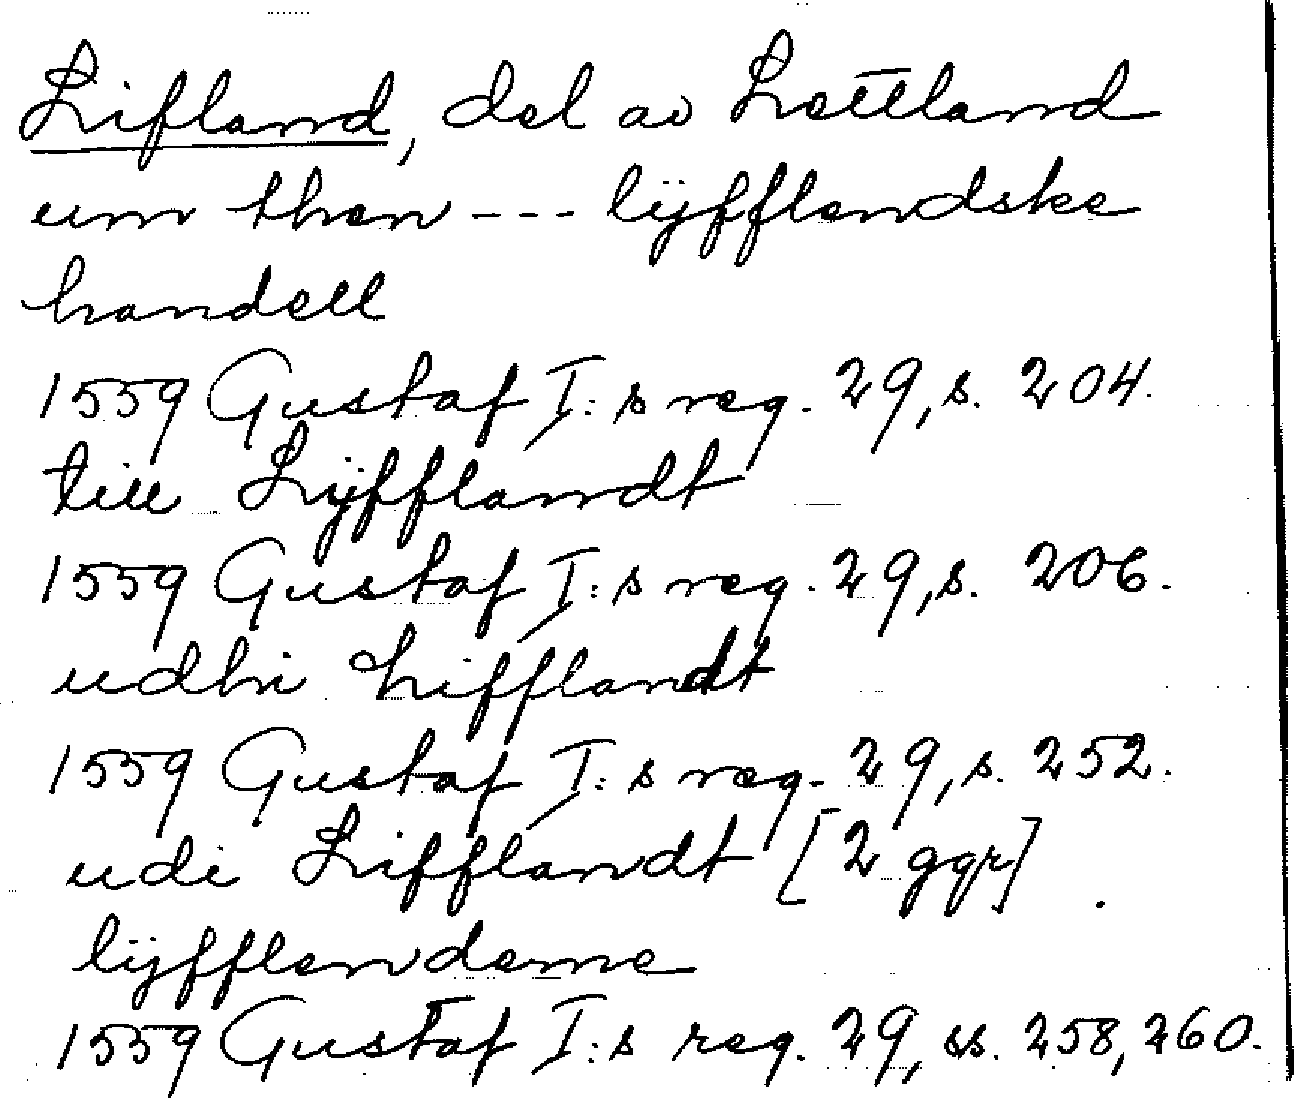 Lifland, del av Lettland
um then --- lÿfflendske
handell
1559 Gustaf I:s reg. 29, s. 204.
till Lÿfflandt
1559 Gustaf I:s reg. 29, s. 206.
udhi Lifflandt
1559 Gustaf I:s reg. 29, s. 252.
udi Lifflandt [2 ggr]
lÿfflenderne
1559 Gustaf I:s reg. 29, ss. 258, 260.